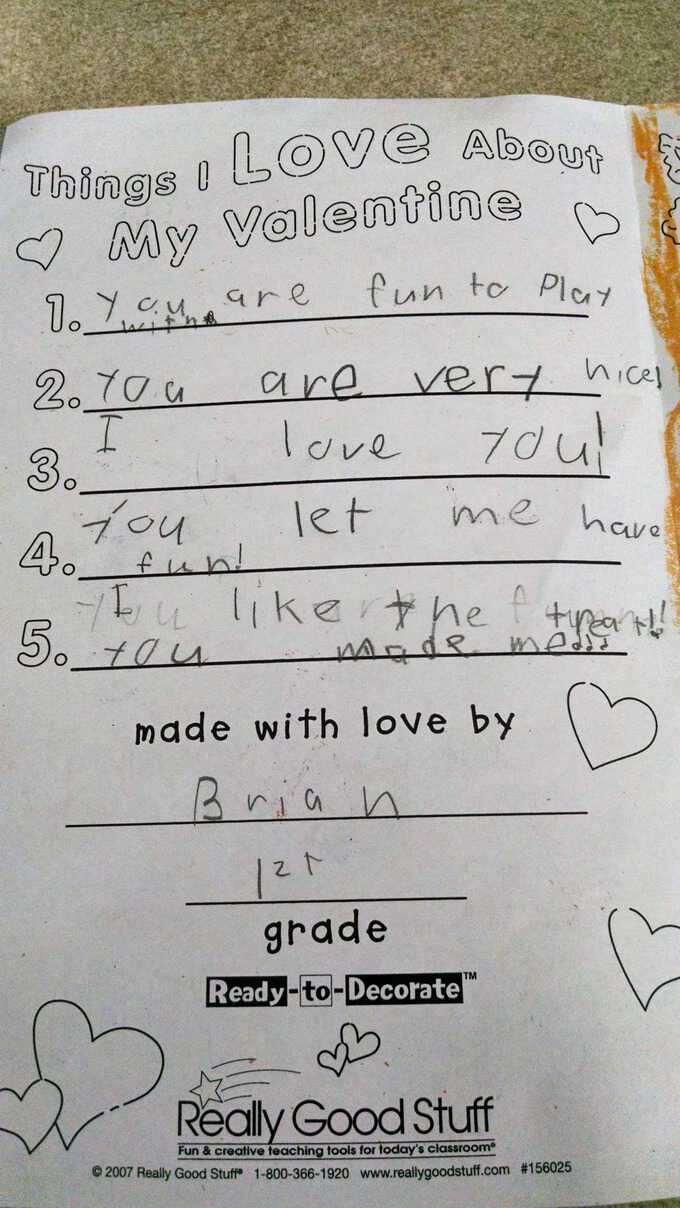 Things I Love About
My Valentine
1. You are fun to Play
with
2. You are very nice!
3. I love you!
4. You let me have
fun!
5. I like the treat!!
you made me
made with love by
Brian
1st
grade
Ready-to-Decorate™
Really Good Stuff
Fun & creative teaching tools for today's classroom®
© 2007 Really Good Stuff® 1-800-366-1920 www.reallygoodstuff.com #156025